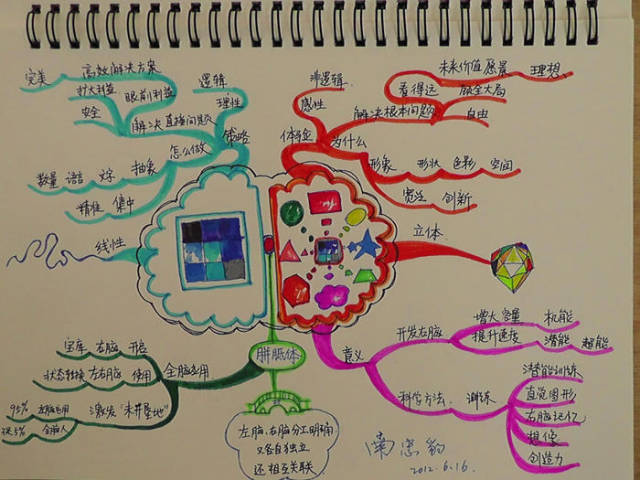 完美 高效解决方案
扩大利益 眼前利益
安全
解决直接问题
逻辑
理性
策略
怎么做
抽象
数量 语言 文字
精准 集中
线性
非逻辑
感性
体验
为什么
未来价值愿景 理想
看得远 顾全大局
解决根本问题 自由
形象 形状 色彩 空间
宽泛 创新
立体
胼胝体
左脑、右脑分工明确
又各自独立
还相互关联
全脑应用
宝库 右脑 开启
状态转换 左右脑 使用
激发"未开垦地"
95% 左脑应用
3%-5% 全脑人
意义
开发右脑
增大容量 机能
提升速度 潜能 超能
科学方法 训练
潜能训练
直觉图形
右脑记忆
想像
创造力
2012.6.16.